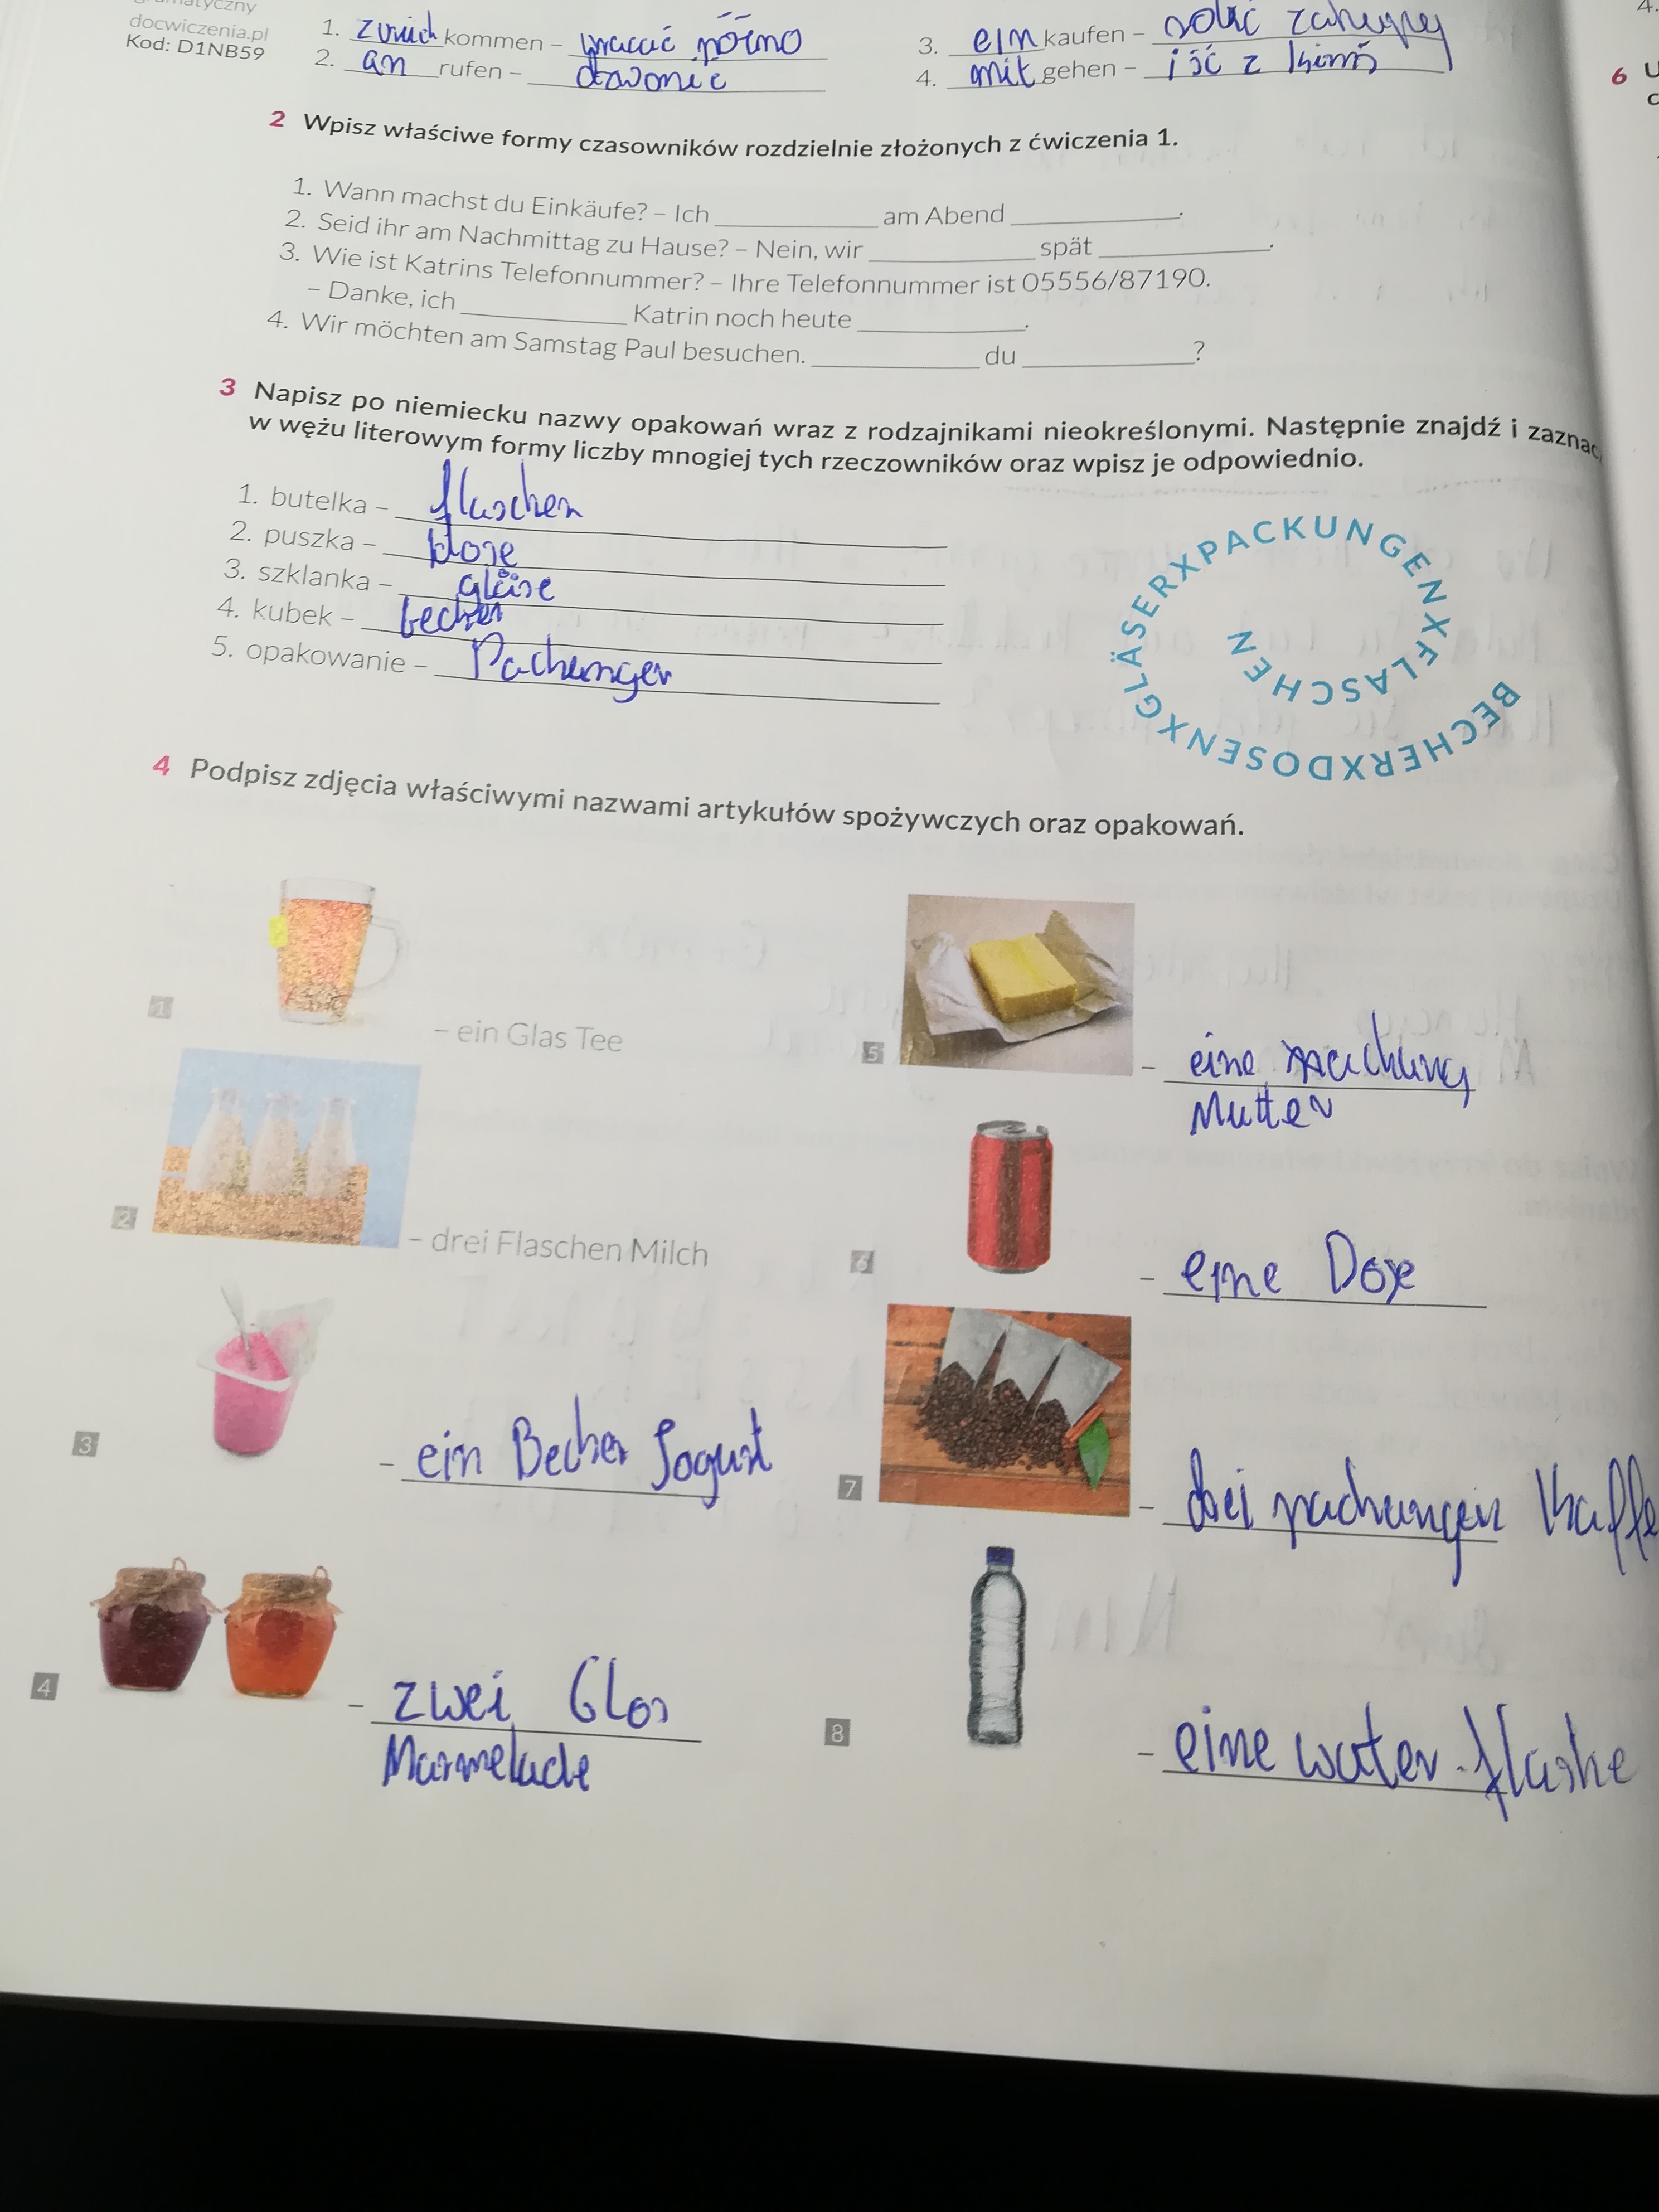 docwiczenia.pl
Kod: D1NB59
1. zurück kommen – wracać późno
2. an rufen – dzwonić
3. ein kaufen – robić zakupy
4. mit gehen – iść z kimś
2 Wpisz właściwe formy czasowników rozdzielnie złożonych z ćwiczenia 1.
1. Wann machst du Einkäufe? – Ich ____ am Abend ____.
2. Seid ihr am Nachmittag zu Hause? – Nein, wir ____ spät ____.
3. Wie ist Katrins Telefonnummer? – Ihre Telefonnummer ist 05556/87190.
– Danke, ich ____ Katrin noch heute ____.
4. Wir möchten am Samstag Paul besuchen. ____ du ____?
3 Napisz po niemiecku nazwy opakowań wraz z rodzajnikami nieokreślonymi. Następnie znajdź i zaznac
w wężu literowym formy liczby mnogiej tych rzeczowników oraz wpisz je odpowiednio.
1. butelka – flaschen
2. puszka – dose
3. szklanka – gläse
4. kubek – becher
5. opakowanie – Packungen
BECHERXDOSENXGLÄSERXPACKUNGENXFLASCHEN
4 Podpisz zdjęcia właściwymi nazwami artykułów spożywczych oraz opakowań.
1 – ein Glas Tee
2 – drei Flaschen Milch
3 – ein Becher Jogurt
4 – zwei Glas
Marmelade
5 – eine packung
Mutter
6 – eine Dose
7 – drei packungen Kaffe
8 – eine water flashe
6